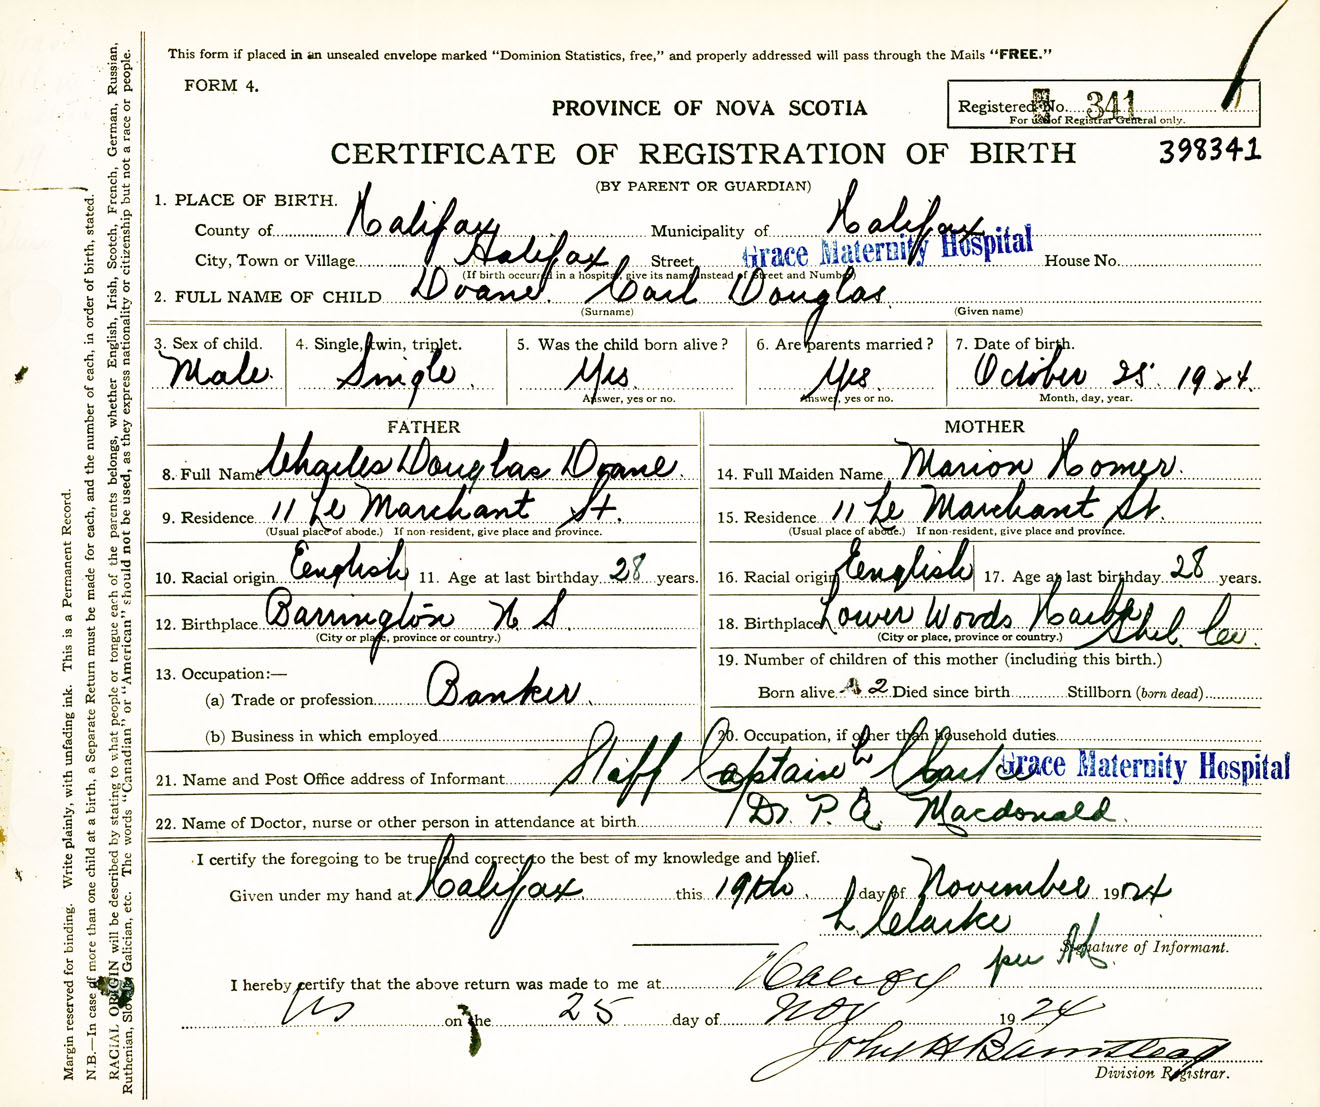 This form if placed in an unsealed envelope marked “Dominion Statistics, free,” and properly addressed will pass through the Mails “FREE.”
FORM 4.
PROVINCE OF NOVA SCOTIA
Registered No. 341
For use of Registrar General only.
CERTIFICATE OF REGISTRATION OF BIRTH
398341
(BY PARENT OR GUARDIAN)
1. PLACE OF BIRTH.
County of Halifax Municipality of Halifax
City, Town or Village Halifax Street Grace Maternity Hospital House No.
(If birth occurred in a hospital, give its name instead of Street and Number)
2. FULL NAME OF CHILD Doane Carl Douglas
(Surname) (Given name)
3. Sex of child. 4. Single, twin, triplet. 5. Was the child born alive? 6. Are parents married? 7. Date of birth.
Male Single Yes Yes October 25 1924.
Answer, yes or no. Answer, yes or no. Month, day, year.
FATHER
8. Full Name Charles Douglas Doane
9. Residence 11 Le Marchant St.
(Usual place of abode.) If non-resident, give place and province.
10. Racial origin English 11. Age at last birthday 28 years.
12. Birthplace Barrington N S
(City or place, province or country.)
13. Occupation:—
(a) Trade or profession Banker
(b) Business in which employed
MOTHER
14. Full Maiden Name Marion Homer.
15. Residence 11 Le Marchant St.
(Usual place of abode.) If non-resident, give place and province.
16. Racial origin English 17. Age at last birthday 28 years.
18. Birthplace Lower Woods Harbor Shel. Co.
(City or place, province or country.)
19. Number of children of this mother (including this birth.)
Born alive 2 Died since birth Stillborn (born dead)
20. Occupation, if other than household duties
21. Name and Post Office address of Informant Staff Captain L Clarke Grace Maternity Hospital
22. Name of Doctor, nurse or other person in attendance at birth Dr. P. A. Macdonald.
I certify the foregoing to be true and correct to the best of my knowledge and belief.
Given under my hand at Halifax this 19th day of November 1924
L. Clarke
Signature of Informant.
per
I hereby certify that the above return was made to me at Halifax
NS on the 25 day of Nov 1924
John H Barnstead
Division Registrar.
Margin reserved for binding. Write plainly, with unfading ink. This is a Permanent Record.
N.B.—In case of more than one child at a birth, a Separate Return must be made for each, and the number of each, in order of birth, stated.
RACIAL ORIGIN will be described by stating to what people or tongue each of the parents belongs, whether English, Irish, Scotch, French, German, Russian,
Ruthenian, Galician, etc. The words “Canadian” or “American” should not be used, as they express nationality or citizenship but not a race or people.